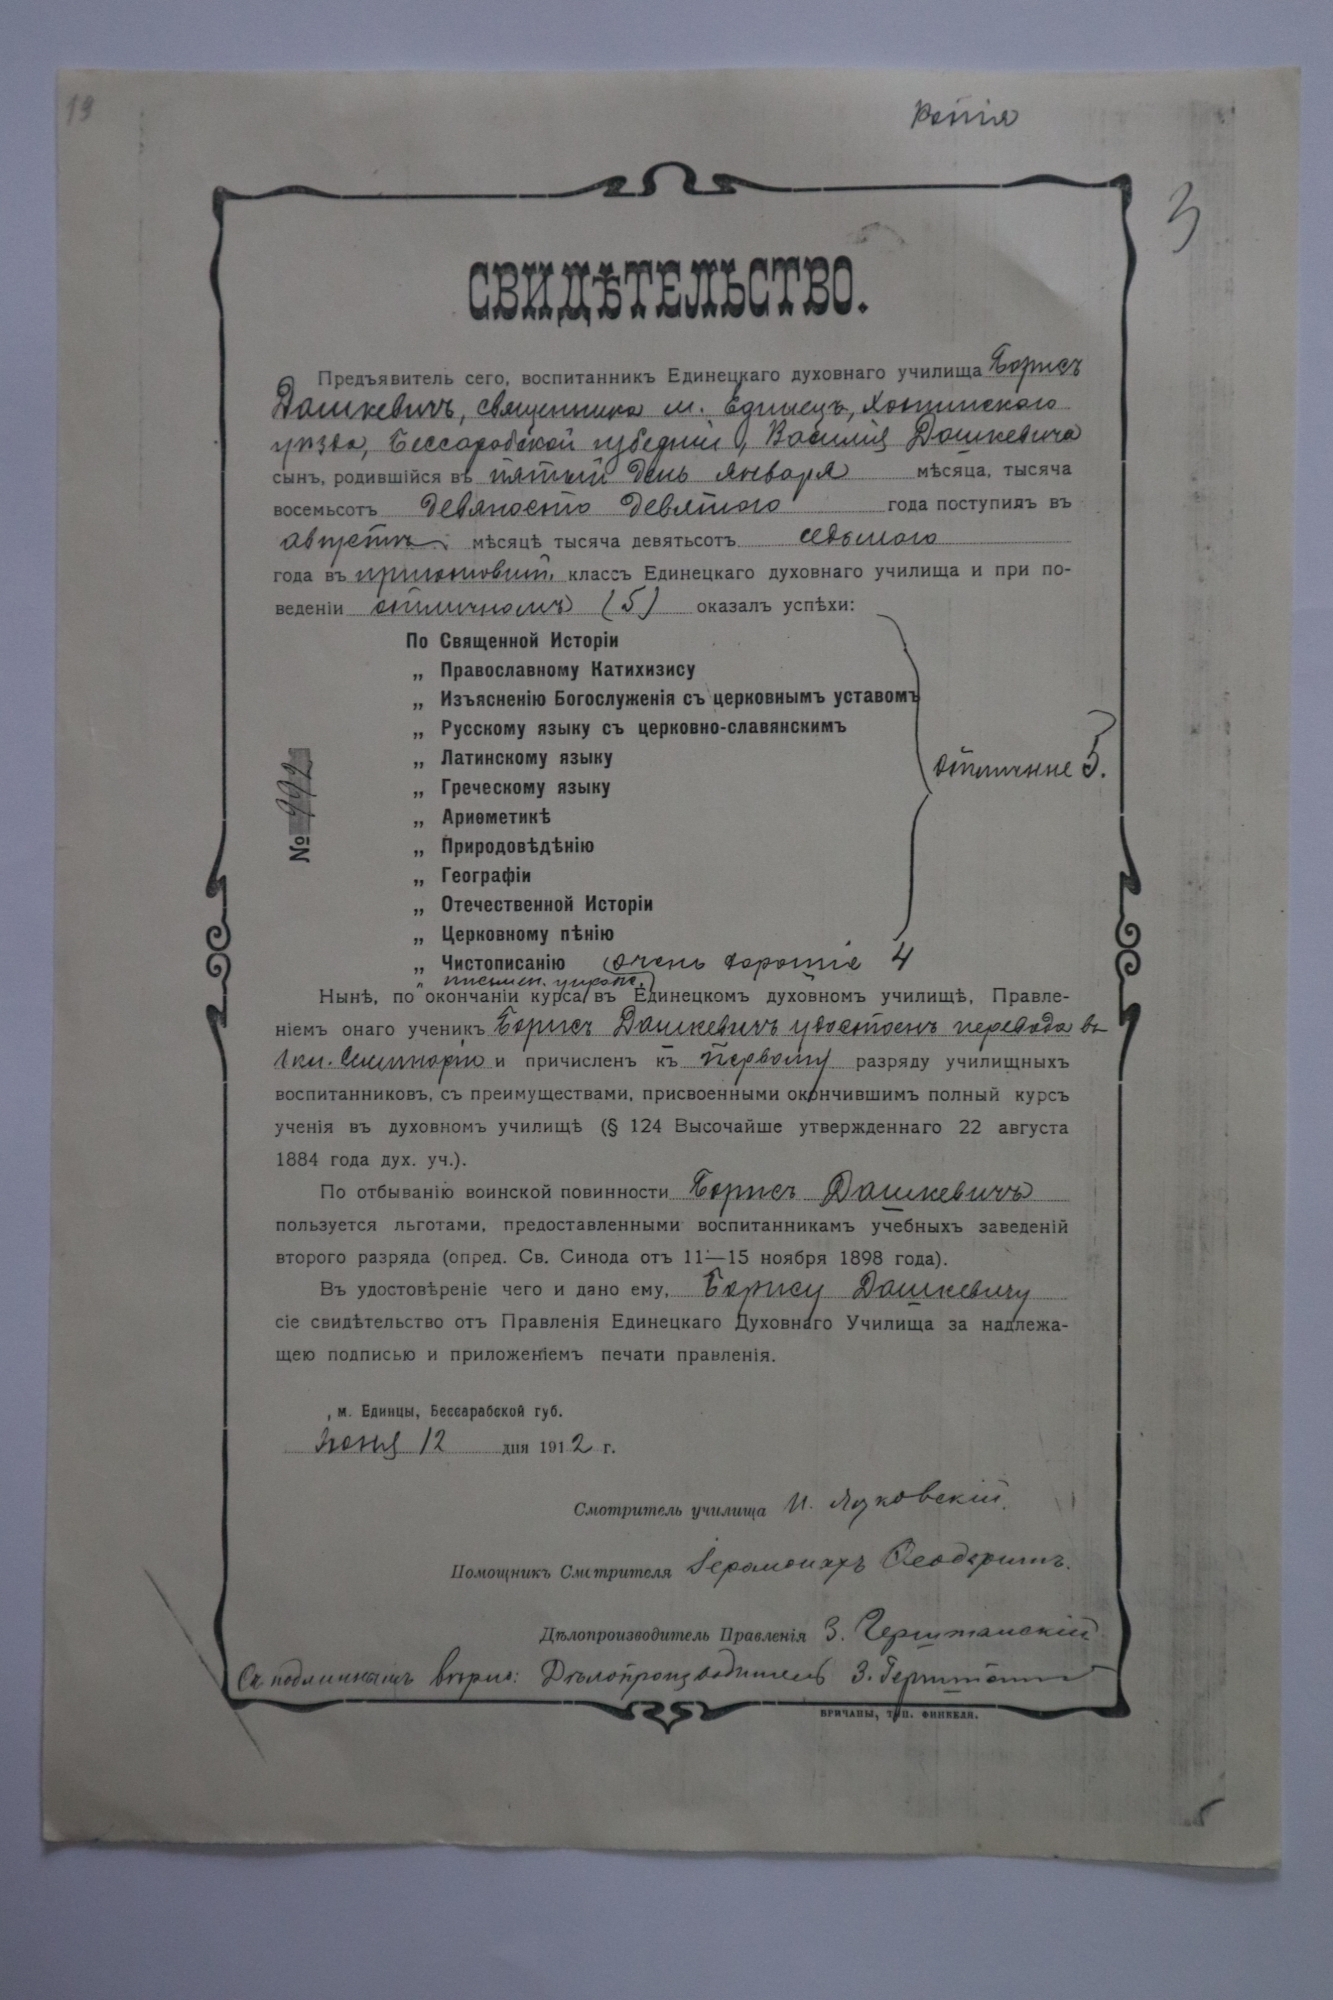 19
копія
3
СВИДѢТЕЛЬСТВО.
Предъявитель сего, воспитанникъ Единецкаго духовнаго училища Борисъ
Дашкевичъ, священника м. Единецъ, Хотинскаго
уѣзда, Бессарабской губерніи, Василія Дашкевича
сынъ, родившійся въ пятый день января мѣсяца, тысяча
восемьсот девяносто девятого года поступилъ въ
августѣ мѣсяцѣ тысяча девятьсотъ седьмого
года въ приготовит. классъ Единецкаго духовнаго училища и при по-
веденіи отличномъ (5) оказалъ успѣхи:
По Священной Исторіи
„ Православному Катихизису
„ Изъясненію Богослуженія съ церковнымъ уставомъ
„ Русскому языку съ церковно-славянскимъ
„ Латинскому языку
„ Греческому языку
отличные 5.
„ Ариѳметикѣ
„ Природовѣдѣнію
„ Географіи
„ Отечественной Исторіи
„ Церковному пѣнію
„ Чистописанію очень хорошіе 4
„ письмен. упраж.
№ 992
Нынѣ, по окончаніи курса въ Единецкомъ духовномъ училищѣ, Правле-
ніемъ онаго ученикъ Борисъ Дашкевичъ удостоенъ перевода въ
1 кл. Семинаріи и причисленъ къ первому разряду училищныхъ
воспитанниковъ, съ преимуществами, присвоенными окончившимъ полный курсъ
ученія въ духовномъ училищѣ (§ 124 Высочайше утвержденнаго 22 августа
1884 года дух. уч.).
По отбыванію воинской повинности Борисъ Дашкевичъ
пользуется льготами, предоставленными воспитанникамъ учебныхъ заведеній
второго разряда (опред. Св. Синода отъ 11—15 ноября 1898 года).
Въ удостовѣреніе чего и дано ему, Борису Дашкевичу
сіе свидѣтельство отъ Правленія Единецкаго Духовнаго Училища за надлежа-
щею подписью и приложеніемъ печати правленія.
м. Единцы, Бессарабской губ.
Июня 12 дня 1912 г.
Смотритель училища И. Язковскій.
Помощникъ Смотрителя Іеромонахъ Ѳеодоритъ.
Дѣлопроизводитель Правленія З.
Съ подлиннымъ вѣрно: Дѣлопроизводитель З.
БРИЧАНЫ, ТИП. ФИНКЕЛЯ.